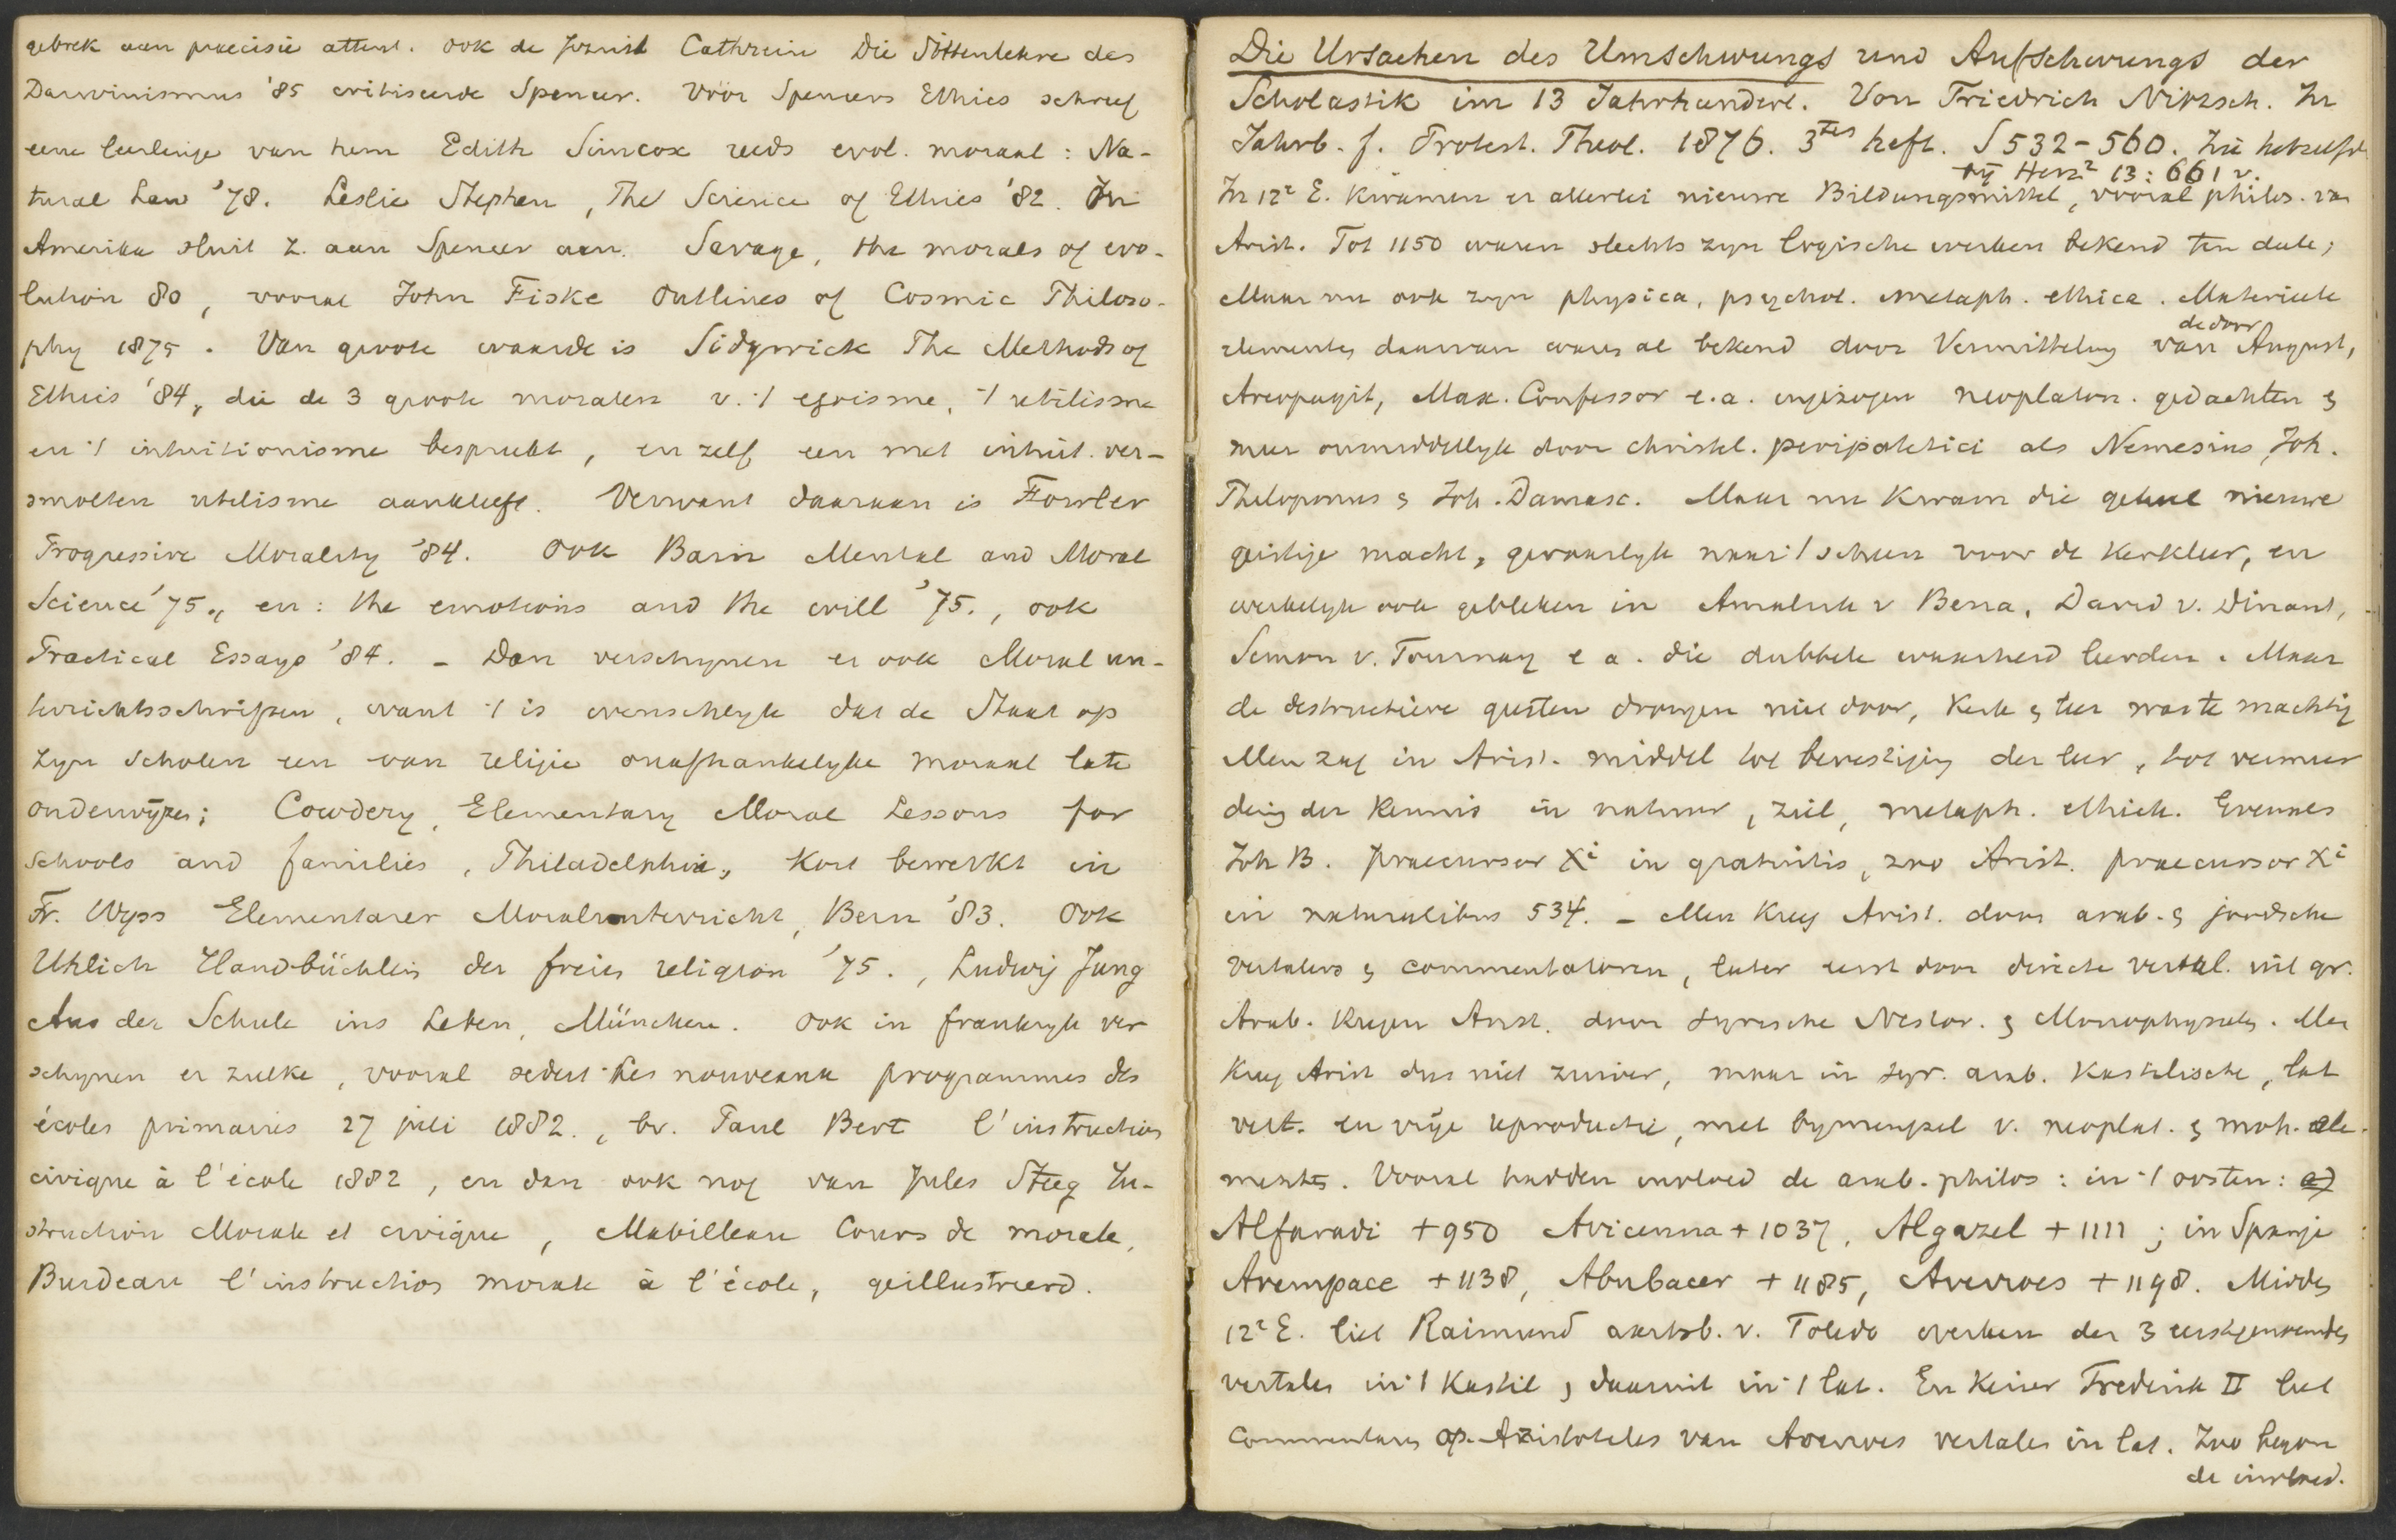 gebrek aan precisie attent. ook de Jezuiet Cathrein Die Sittenlehre des
Darwinismus '85 critiseerde Spencer. Vóór Spencers Ethics schreef
eene leerlinge van hem Edith Simcox reeds evol. moraal: Na-
tural Law '78. Leslie Stephen, The Science of Ethics '82. In
Amerika sluit z. aan Spencer aan. Savage, the morals of evo-
lution 80, vooral John Fiske Outlines of Cosmic Philoso-
phy 1875. Van groote waarde is Sidgwick The Methods of
Ethics '84, die de 3 groote moralen v. 't egoisme, 't utilisme
en 't intuitionisme bespreekt, en zelf een met intuit. ver-
smolten utilisme aankleeft. Verwant daaraan is Fowler
Progressive Morality '84. Ook Bain Mental and Moral
Science '75., en: the emotions and the will '75., ook
Practical Essays '84. – Dan verschijnen er ook Moral un-
terichtsschriften, want 't is wenschelyk dat de Staat op
zyn scholen een van religie onafhankelyke moraal late
onderwijzen; Cowdery, Elementary Moral Lessons for
schools and families, Philadelphia, kort bewerkt in
Fr. Wyss Elementarer Moralunterricht, Bern '83. Ook
Uhlich Handbüchlein der freien religion '75., Ludwig Jung
Aus der Schule ins Leben, München. Ook in frankryk ver
schynen er zulke, vooral sedert les nouveaux programmes des
écoles primaires 27 juli 1882., bv. Paul Bert l'instruction
civique à l'école 1882, en dan ook nog van Jules Steeg In-
struction Morale et civique, Mabilleau Cours de morale,
Burdeau l'instruction morale à l'école, geillustreerd.
Die Ursachen des Umschwungs und Aufschwungs der
Scholastik im 13 Jahrhundert. Von Friedrich Nitzsch. In
Jahrb. f. Protest. Theol. 1876. 3tes heft. S 532-560. Zie hetzelfde
by Herz² 13: 661 v.
In 12e E. kwamen er allerlei nieuwe Bildungsmittel, vooral philos. van
Arist. Tot 1150 waren slechts zyn logische werken bekend ten deele;
Maar nu ook zyn physica, psychol. metaph. ethica. Materieele
elementen daarvan waren al bekend door Vermitteling van de door August,
Areopagit, Max. Confessor e.a. ingezogen neoplaton. gedachten &
meer onmiddellyk door christel. peripatetici als Nemesius, Joh.
Philoponus & Joh. Damasc. Maar nu kwam die geheel nieuwe
geistige macht, gevaarlyk naar 't scheen voor de kerkleer, en
werkelyk ook gebleken in Amalrik v Bena, David v. Dinant,
Simon v. Tournay e a. die dubbele waarheid leerden. Maar
de destructieve geesten drongen niet door, kerk & leer was te machtig
Men zag in Arist. middel tot bevestiging der leer, tot vermeer
dering der kennis in natuur, ziel, metaph. ethiek. Evenals
Joh B. praecursor Xi in gratuitis, zoo Arist. praecursor Xi
in naturalibus 534. – Men kreeg Arist. door arab. & joodsche
vertalers & commentatoren, later eerst door directe vertal. uit gr.
Arab. kregen Arist. door syrische Nestor. & Monophysieten. Men
kreeg Arist dus niet zuiver, maar in syr. arab. kastilische, lat
vert. en vrije reproductie, met bymengsel v. neoplat. & moh. ele-
menten. Vooral hadden invloed de arab. philos: in 't oosten: a)
Alfaradi +950 Avicenna + 1037, Algazel + 1111; in Spanje
Avempace +1138, Abubacer + 1185, Averroes + 1198. Midden
12e E. liet Raimund aartsb. v. Toledo werken der 3 eerstgenoemden
vertalen in 't Kastil, daaruit in 't lat. En Keizer Frederik II liet
Commentaren op. Aristoteles van Averroes vertalen in lat. Zoo begon
de invloed.